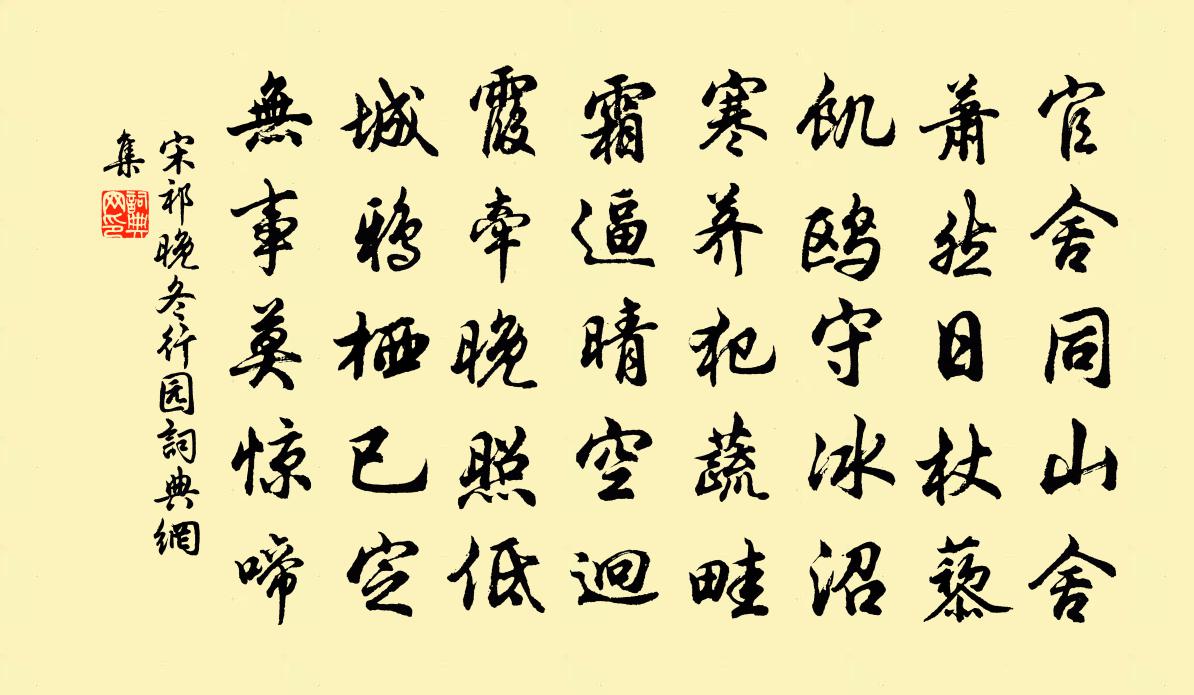 官舍同山舍
萧然日杖藜
飢鸥守冰沼
寒荞犯蔬畦
霜逼晴空迥
霞牵晚照低
城鸦栖已定
無事莫惊啼
宋祁晚冬行园詞典網
集
詞典网印